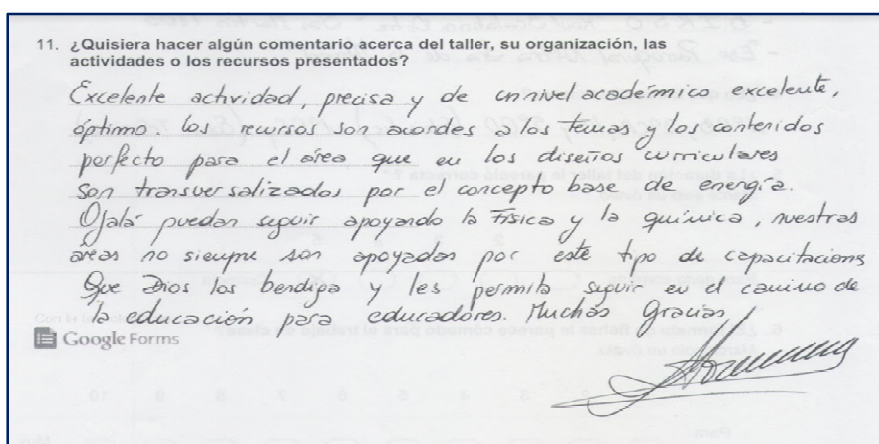 11. ¿Quisiera hacer algún comentario acerca del taller, su organización, las
actividades o los recursos presentados?
Excelente actividad, precisa y de un nivel académico excelente,
óptimo. Los recursos son acordes a los temas y los contenidos
perfecto para el área que en los diseños curriculares
son transversalizados por el concepto base de energía.
Ojalá puedan seguir apoyando la Física y la química, nuestras
áreas no siempre son apoyadas por este tipo de capacitaciones
Que Dios los bendiga y les permita seguir en el camino de
la educación para educadores. Muchas Gracias
Google Forms